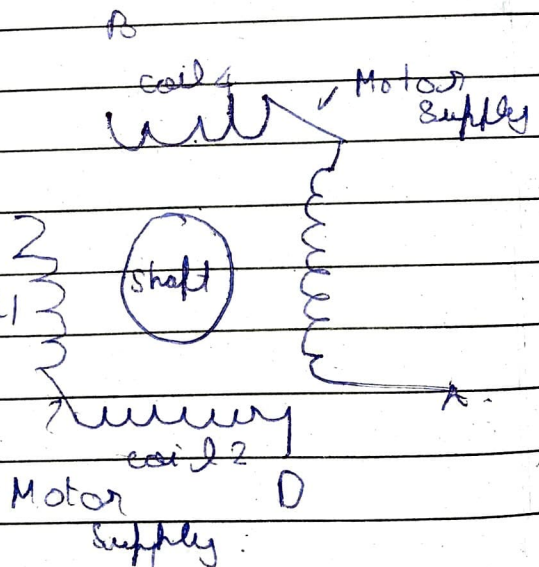 B
coil 4
Motor
Supply
shaft
-1
A.
coil 2
Motor
D
Supply: